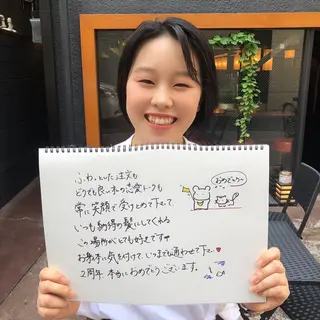 ふわっとした注文も
どうでも良い私の恋愛トークも
常に笑顔で受けとめて下さって
いつも納得の髪にしてくれる
この場所がとても好きです♥
お身体に気を付けて、いつまでも通わせて下さい♥
2周年 本当におめでとうございます。
おめでとう〜